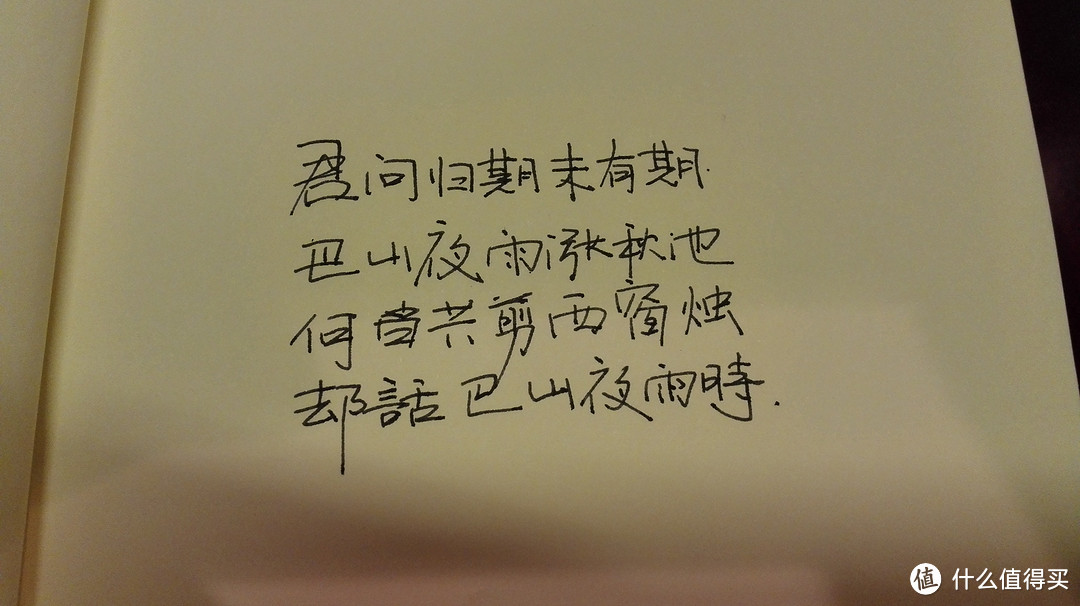 君问归期未有期.
巴山夜雨涨秋池
何当共剪西窗烛
却話巴山夜雨時.
值 什么值得买